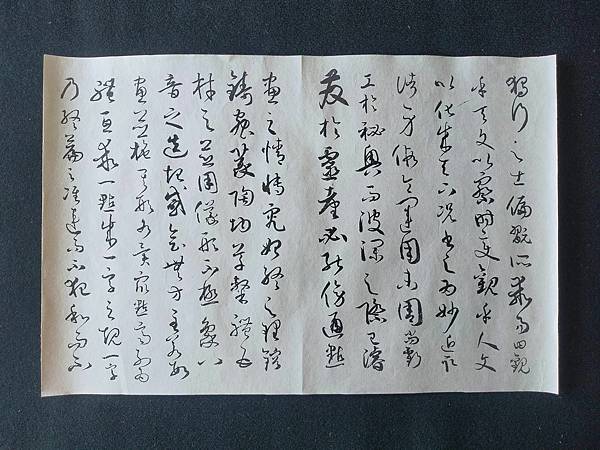 獨行之士偏翫所乖易曰觀
乎天文以察時變觀乎人文
以化成天下況書之為妙近取
諸身假令運用未周尚虧
工於秘奧而波瀾之際已濬
發於靈臺必能傍通點
畫之情博究始終之理鎔
鑄蟲篆陶均草隸體五
材之並用儀形不極象八
音之迭起感會無方至若數
畫並施其形各異眾點齊列為
體互乖一點成一字之規一字
乃終篇之准違而不犯和而不